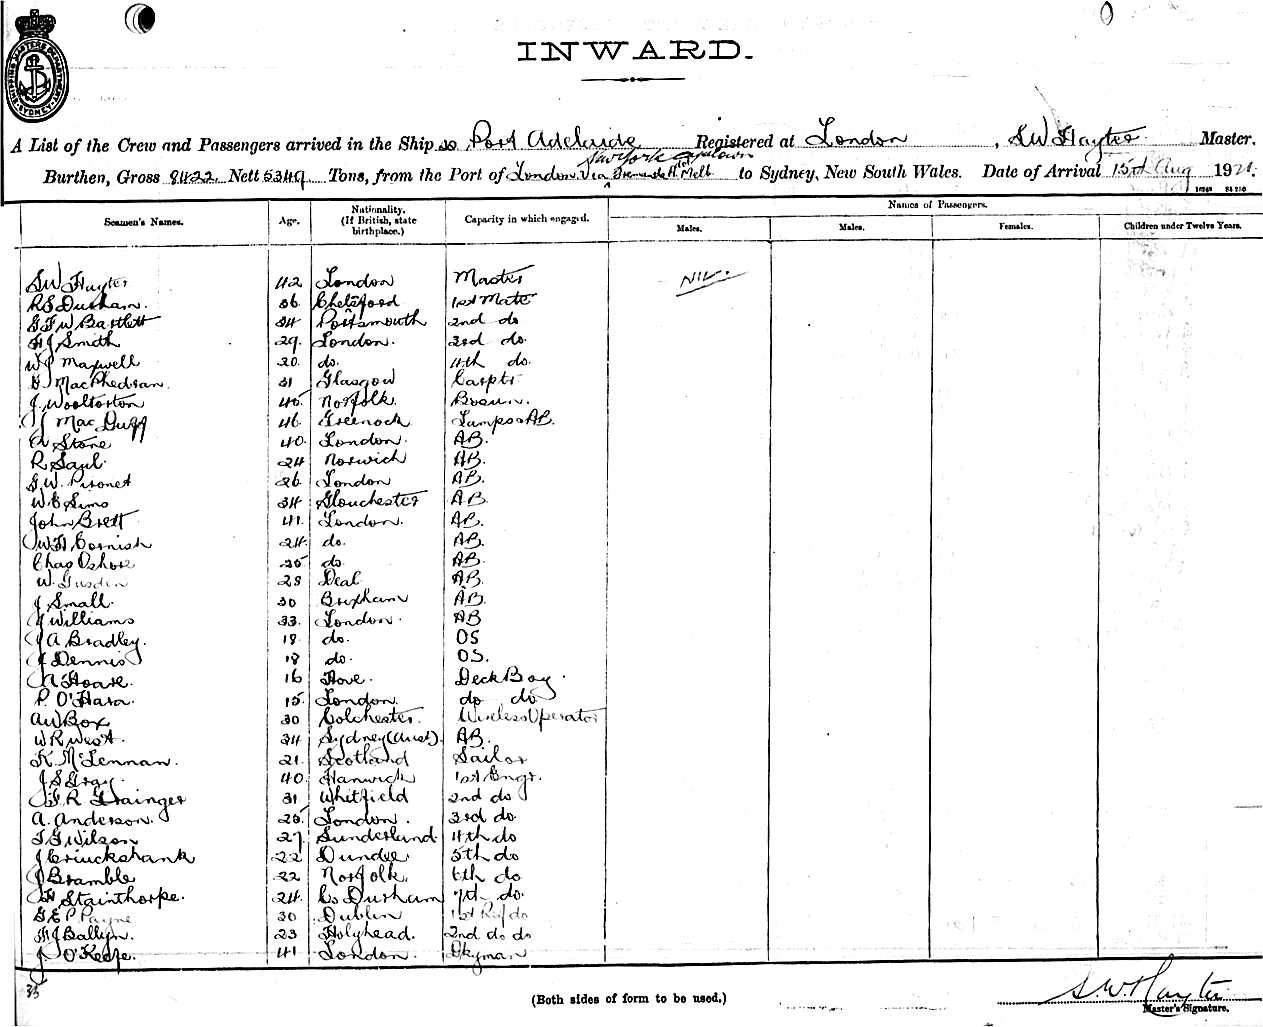 INWARD.
A List of the Crew and Passengers arrived in the Ship ss Port Adelaide Registered at London, S W Hayter Master.
New York Capetown
Burthen, Gross 8422 Nett 5349 Tons, from the Port of London Via Melb to Sydney, New South Wales. Date of Arrival 15th Aug 1921.
Names of Passengers.
Seamen's Names. Age. Nationality. (If British, state birthplace.) Capacity in which engaged. Males. Males. Females. Children under Twelve Years.
S W Hayter 42 London Master Nil.
R S Durham. 36 Chelsford 1st Mate
G F W Bartlett 34 Portsmouth 2nd do
H J Smith 29. London. 3rd do.
W J Maxwell 20. do. 4th do.
D MacPhedran. 31 Glasgow Carptr
J. Woolterton 45 Norfolk. Bosun.
J MacDuff 46. Greenock Lamps & AB.
A Stone 40. London. AB.
R Saul. 24 Norwich AB.
G. W. Pisonet 26. London AB.
W. E Sims 34 Glouchester AB.
John Brett 41. London. AB.
W H Cornish 24. do. AB.
Chas Oshore 25 do. AB.
W. Gusden 28 Deal AB.
J Small. 30 Brixham AB.
J Williams 33. London. AB
J A Bradley. 18 do. OS
J Dennis 18 do. OS.
A Hoare. 16 Hove. Deck Boy.
P. O'Hara. 15. London. do do
A W Box 30 Colchester. Wireless Operator
W R West. 34 Sydney (Aust). AB.
K. McLennan. 21. Scotland Sailor
J. S Gray. 40. Harwick 1st Engr.
F. R Grainger 31 Whitfield 2nd do
A. Anderson. 25 London. 3rd do.
T G Wilson 27. Sunderland 4th do
J Criuckshank 22 Dundee 5th do
J Bramble 22 Norfolk. 6th do
H Stainthorpe. 24. Co Durham 7th do.
G E P Payne 30 Dublin 1st Ref do
H J Ballyn. 23 Holyhead. 2nd do do
J O'Keefe. 41 London. Dkyman
35
(Both sides of form to be used.)
S. W. Hayter
Master's Signature.